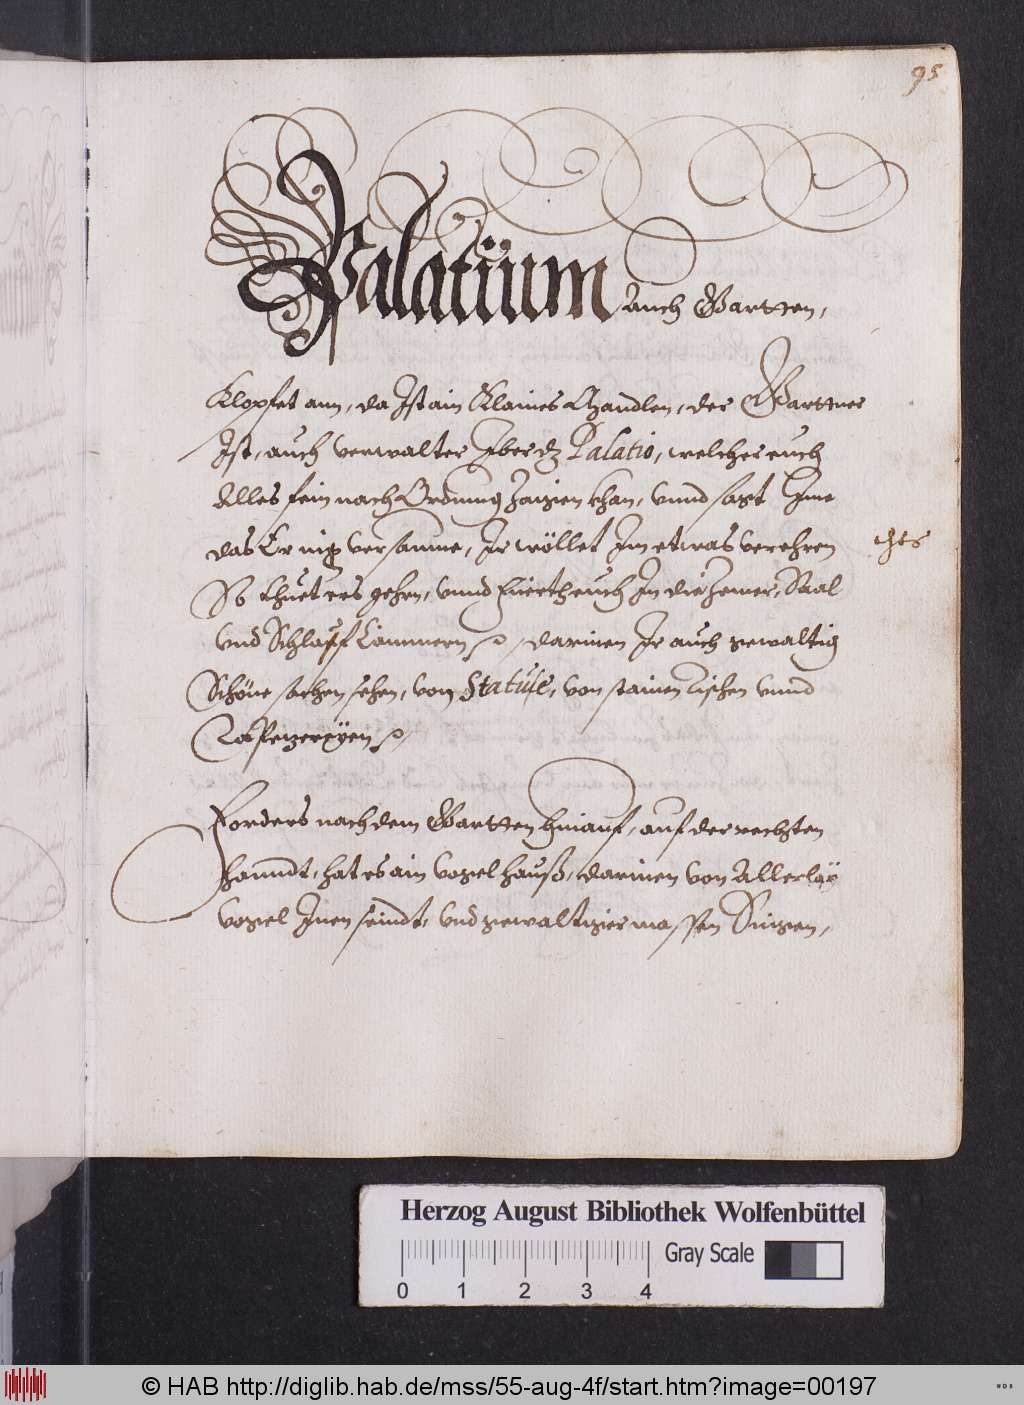 95
Palatium auch Gartten,
Klopfet ann, da Ist ain Klaines Heandlen, der Garttner
Ist, auch verwalter Iber dz Palatio, welcher euch
Alles fein nach Ordnung Zaigen khan, vnnd sagt Ime
das Er nig versaume, Ir wöllet Im etwas verehren
chts
So thuet ers gehrn, vnnd fierth euch In die Zimer, Saal
vnd Schlauff Camern darinen Ir auch gewaltig
Schöne sachen sehen, von Statuse, von stainen tischen vnnd
Dafeizereyen
Forders nach dem Gartten hinauf, auf der rechten
Hanndt, hat es ain Vogel hauß, darinen von Allerlay
Vogel Inen seindt, vnd gewaltiger massen Singen,
Herzog August Bibliothek Wolfenbüttel
Gray Scale
0 1 2 3 4
© HAB http://diglib.hab.de/mss/55-aug-4f/start.htm?image=00197